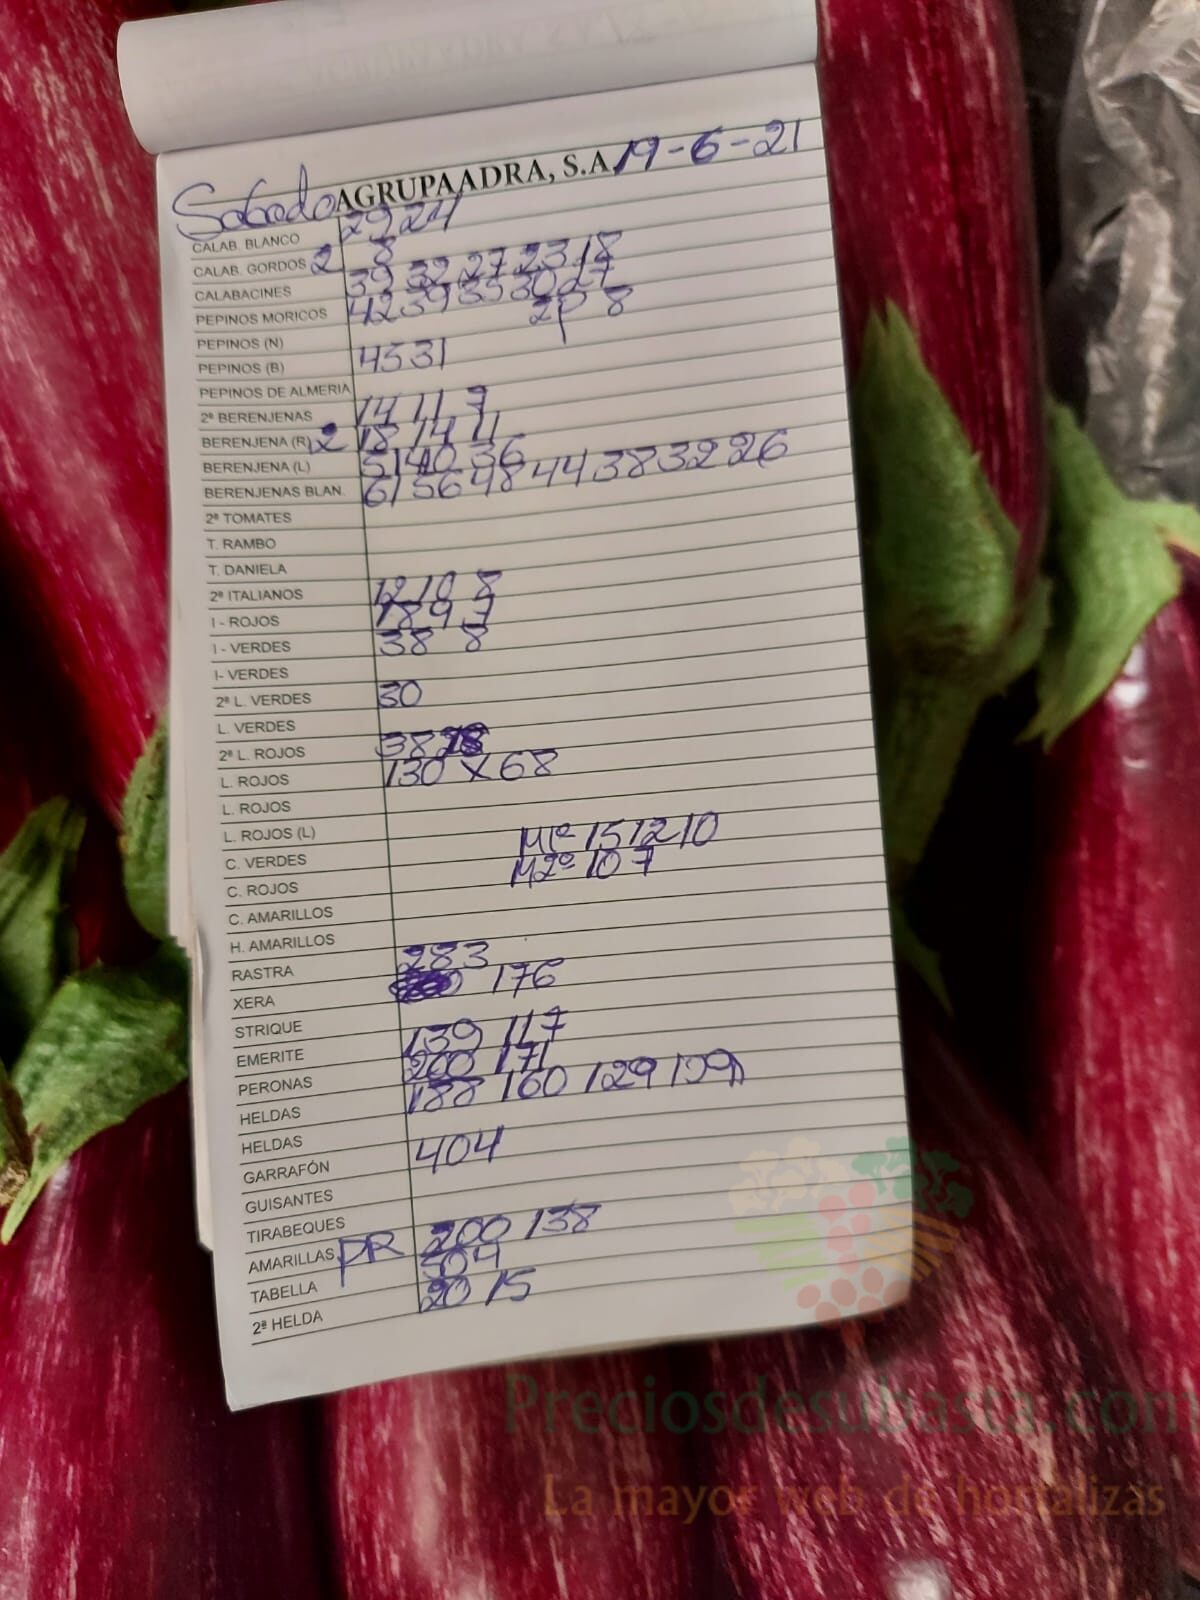 Sabado AGRUPAADRA, S.A. 19-6-21
CALAB. BLANCO 29 24
CALAB. GORDOS 2 8
CALABACINES 39 32 27 23 18
PEPINOS MORICOS 42 39 35 30 27
PEPINOS (N) 2P 8
PEPINOS (B) 45 31
PEPINOS DE ALMERIA
2ª BERENJENAS 14 11 7
BERENJENA (R) 2 18 14 11
BERENJENA (L) 51 40 36
BERENJENAS BLAN. 61 56 48 44 38 32 26
2ª TOMATES
T. RAMBO
T. DANIELA
2ª ITALIANOS 12 10 8
I - ROJOS 9 7
I - VERDES 38 8
I- VERDES
2ª L. VERDES 30
L. VERDES
2ª L. ROJOS 38 28
L. ROJOS 130 X 68
L. ROJOS
L. ROJOS (L)
C. VERDES M1ª 15 12 10
C. ROJOS M2ª 10 7
C. AMARILLOS
H. AMARILLOS
RASTRA 283
XERA 176
STRIQUE
EMERITE 139 117
PERONAS 200 171
HELDAS 188 160 129 109
HELDAS
GARRAFÓN 404
GUISANTES
TIRABEQUES
AMARILLAS PR 200 138
TABELLA 504
2ª HELDA 20 15
Preciosdesubasta.com
La mayor web de hortalizas